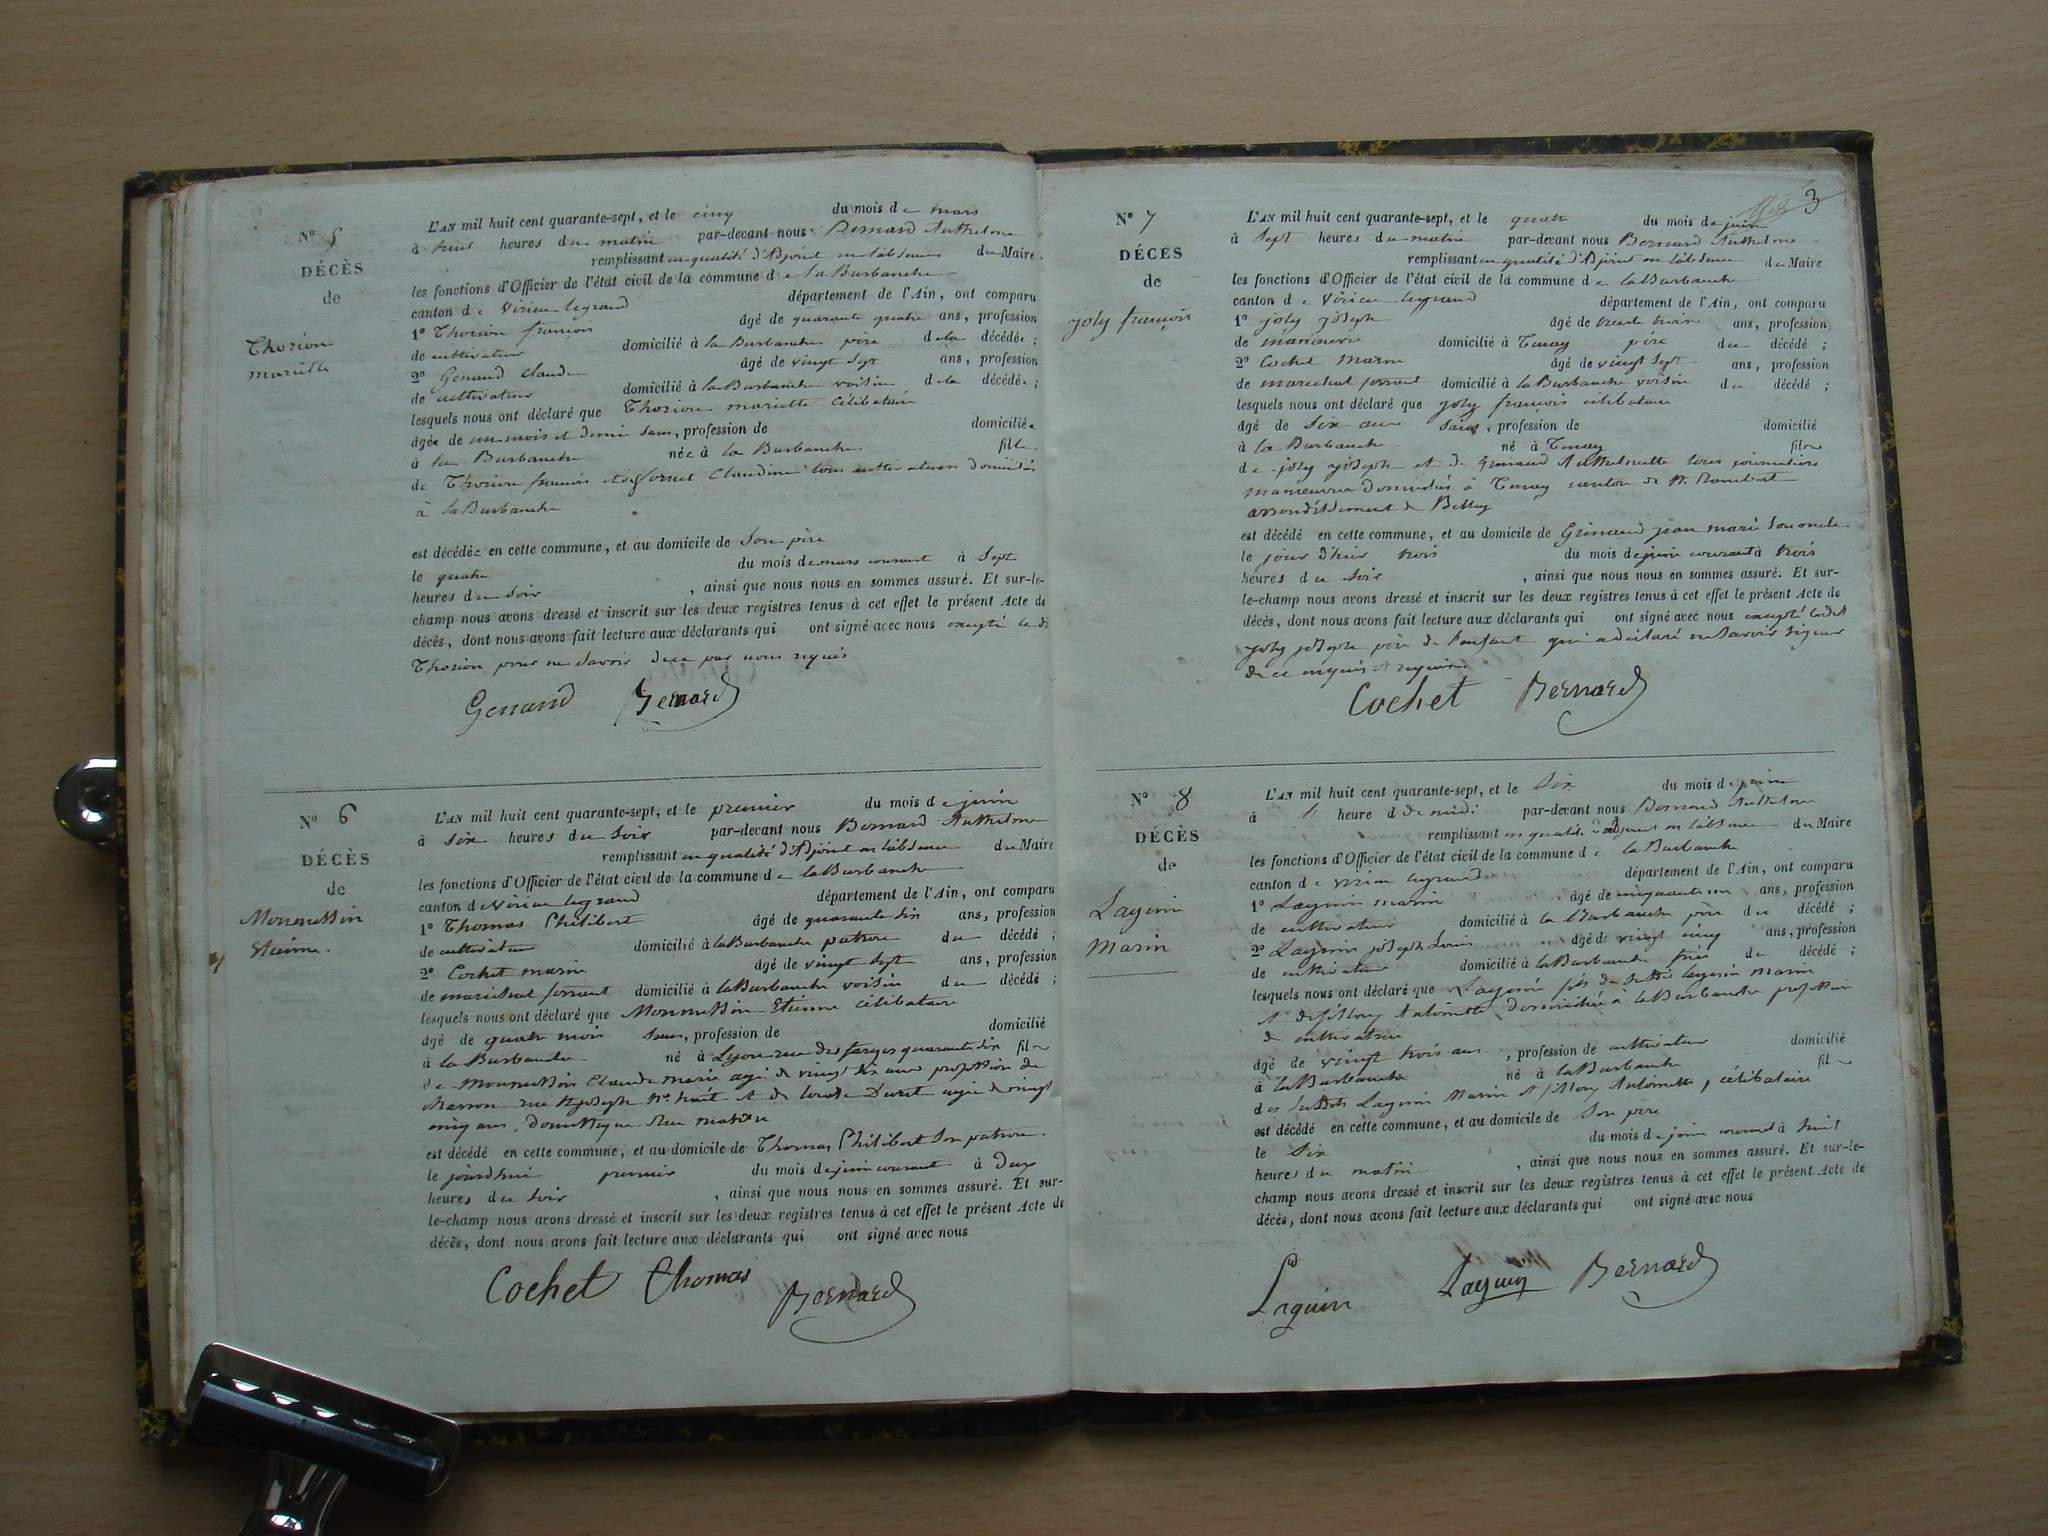 N° 5
DÉCÈS
de
Thorion
mariette
L'AN mil huit cent quarante-sept, et le cinq du mois de mars
à huit heures du matin par-devant nous Bernard Anthelme
remplissant en qualité d'Adjoint en l'absence du Maire
les fonctions d'Officier de l'état civil de la commune de la Burbanche
canton de Virieu legrand département de l'Ain, ont comparu
1° Thorion françois âgé de quarante quatre ans, profession
de cultivateur domicilié à la Burbanche père de la décédée ;
2° Genand claude âgé de vingt sept ans, profession
de cultivateur domicilié à la Burbanche voisin de la décédée ;
lesquels nous ont déclaré que Thorion mariette célibataire
âgée de un mois et demi sans, profession de domiciliée
à la Burbanche née à la Burbanche fille
de Thorion françois et de Claudine tous cultivateurs domiciliés
à la Burbanche
est décédée en cette commune, et au domicile de son père
le quatre du mois de mars courant à sept
heures du soir , ainsi que nous nous en sommes assuré. Et sur-le-
champ nous avons dressé et inscrit sur les deux registres tenus à cet effet le présent Acte de
décès, dont nous avons fait lecture aux déclarants qui ont signé avec nous excepté le dt
Thorion pour ne savoir dece par nous requis
Genand Bernard
N° 6
DÉCÈS
de
Monnessin
Etienne.
L'AN mil huit cent quarante-sept, et le premier du mois de juin
à six heures du soir par-devant nous Bernard Anthelme
remplissant en qualité d'Adjoint en l'absence du Maire
les fonctions d'Officier de l'état civil de la commune de la Burbanche
canton de Virieu legrand département de l'Ain, ont comparu
1° Thomas Philibert âgé de quarante six ans, profession
de cultivateur domicilié à la Burbanche patron du décédé ;
2° Cochet marin âgé de vingt sept ans, profession
de marechal ferrant domicilié à la Burbanche voisin du décédé ;
lesquels nous ont déclaré que Monnessin Etienne célibataire
âgé de quatre mois sans, profession de domicilié
à la Burbanche né à Lyon rue des farges quarante six fils
de Monnessin Claude marie agé de vingt six ans profession de
Masson rue St joseph n° huit et de Duret agée de vingt
cinq ans, Domestique
est décédé en cette commune, et au domicile de Thomas Philibert son patron.
le jourdhui premier du mois de juin courant à Deux
heures du soir , ainsi que nous nous en sommes assuré. Et sur-
le-champ nous avons dressé et inscrit sur les deux registres tenus à cet effet le présent Acte de
décès, dont nous avons fait lecture aux déclarants qui ont signé avec nous
Cochet Thomas Bernard
3
N° 7
DÉCÈS
de
joly françois
L'AN mil huit cent quarante-sept, et le quatre du mois de juin
à sept heures du matin par-devant nous Bernard Anthelme
remplissant en qualité d'Adjoint en l'absence du Maire
les fonctions d'Officier de l'état civil de la commune de la Burbanche
canton de Virieu legrand département de l'Ain, ont comparu
1° joly joseph âgé de trente trois ans, profession
de manœuvre domicilié à Tenay père du décédé ;
2° Cochet Marin âgé de vingt sept ans, profession
de marechal ferrant domicilié à la Burbanche voisin du décédé ;
lesquels nous ont déclaré que joly françois célibataire
âgé de six ans sans, profession de domicilié
à la Burbanche né à Tenay fils
de joly joseph et de Grinand Anthelmette tous journaliers
manœuvres domiciliés à Tenay canton de St. Rambert
arrondissement de Belley
est décédé en cette commune, et au domicile de Grinand jean marie son oncle
le jour d'hier trois du mois de juin courant à trois
heures du soir , ainsi que nous nous en sommes assuré. Et sur-
le-champ nous avons dressé et inscrit sur les deux registres tenus à cet effet le présent Acte de
décès, dont nous avons fait lecture aux déclarants qui ont signé avec nous excepté ledit
joly joseph père de l'enfant qui a déclaré ne savoir signer
de ce enquis et requis.
Cochet Bernard
N° 8
DÉCÈS
de
Laguin
Marin
L'AN mil huit cent quarante-sept, et le six du mois de juin
à heure de midi par-devant nous Bernard Anthelme
remplissant en qualité d'adjoint en l'absence du Maire
les fonctions d'Officier de l'état civil de la commune de la Burbanche
canton de Virieu legrand département de l'Ain, ont comparu
1° Laguin marin âgé de cinquante ans, profession
de cultivateur domicilié à la Burbanche père du décédé ;
2° Laguin joseph Louis âgé de vingt cinq ans, profession
de cultivateur domicilié à la Burbanche frère du décédé ;
lesquels nous ont déclaré que Laguin fils du susdit laguin marin
et de Antoinette, domiciliée à la Burbanche profession
de cultivateur
âgé de vingt trois ans , profession de cultivateur domicilié
à la Burbanche né à la Burbanche fils
des susdits Laguin Marin et Antoinette, célibataire
est décédé en cette commune, et au domicile de son père
le six du mois de juin courant à huit
heures du matin , ainsi que nous nous en sommes assuré. Et sur-le-
champ nous avons dressé et inscrit sur les deux registres tenus à cet effet le présent Acte de
décès, dont nous avons fait lecture aux déclarants qui ont signé avec nous
Laguin Laguin Bernard